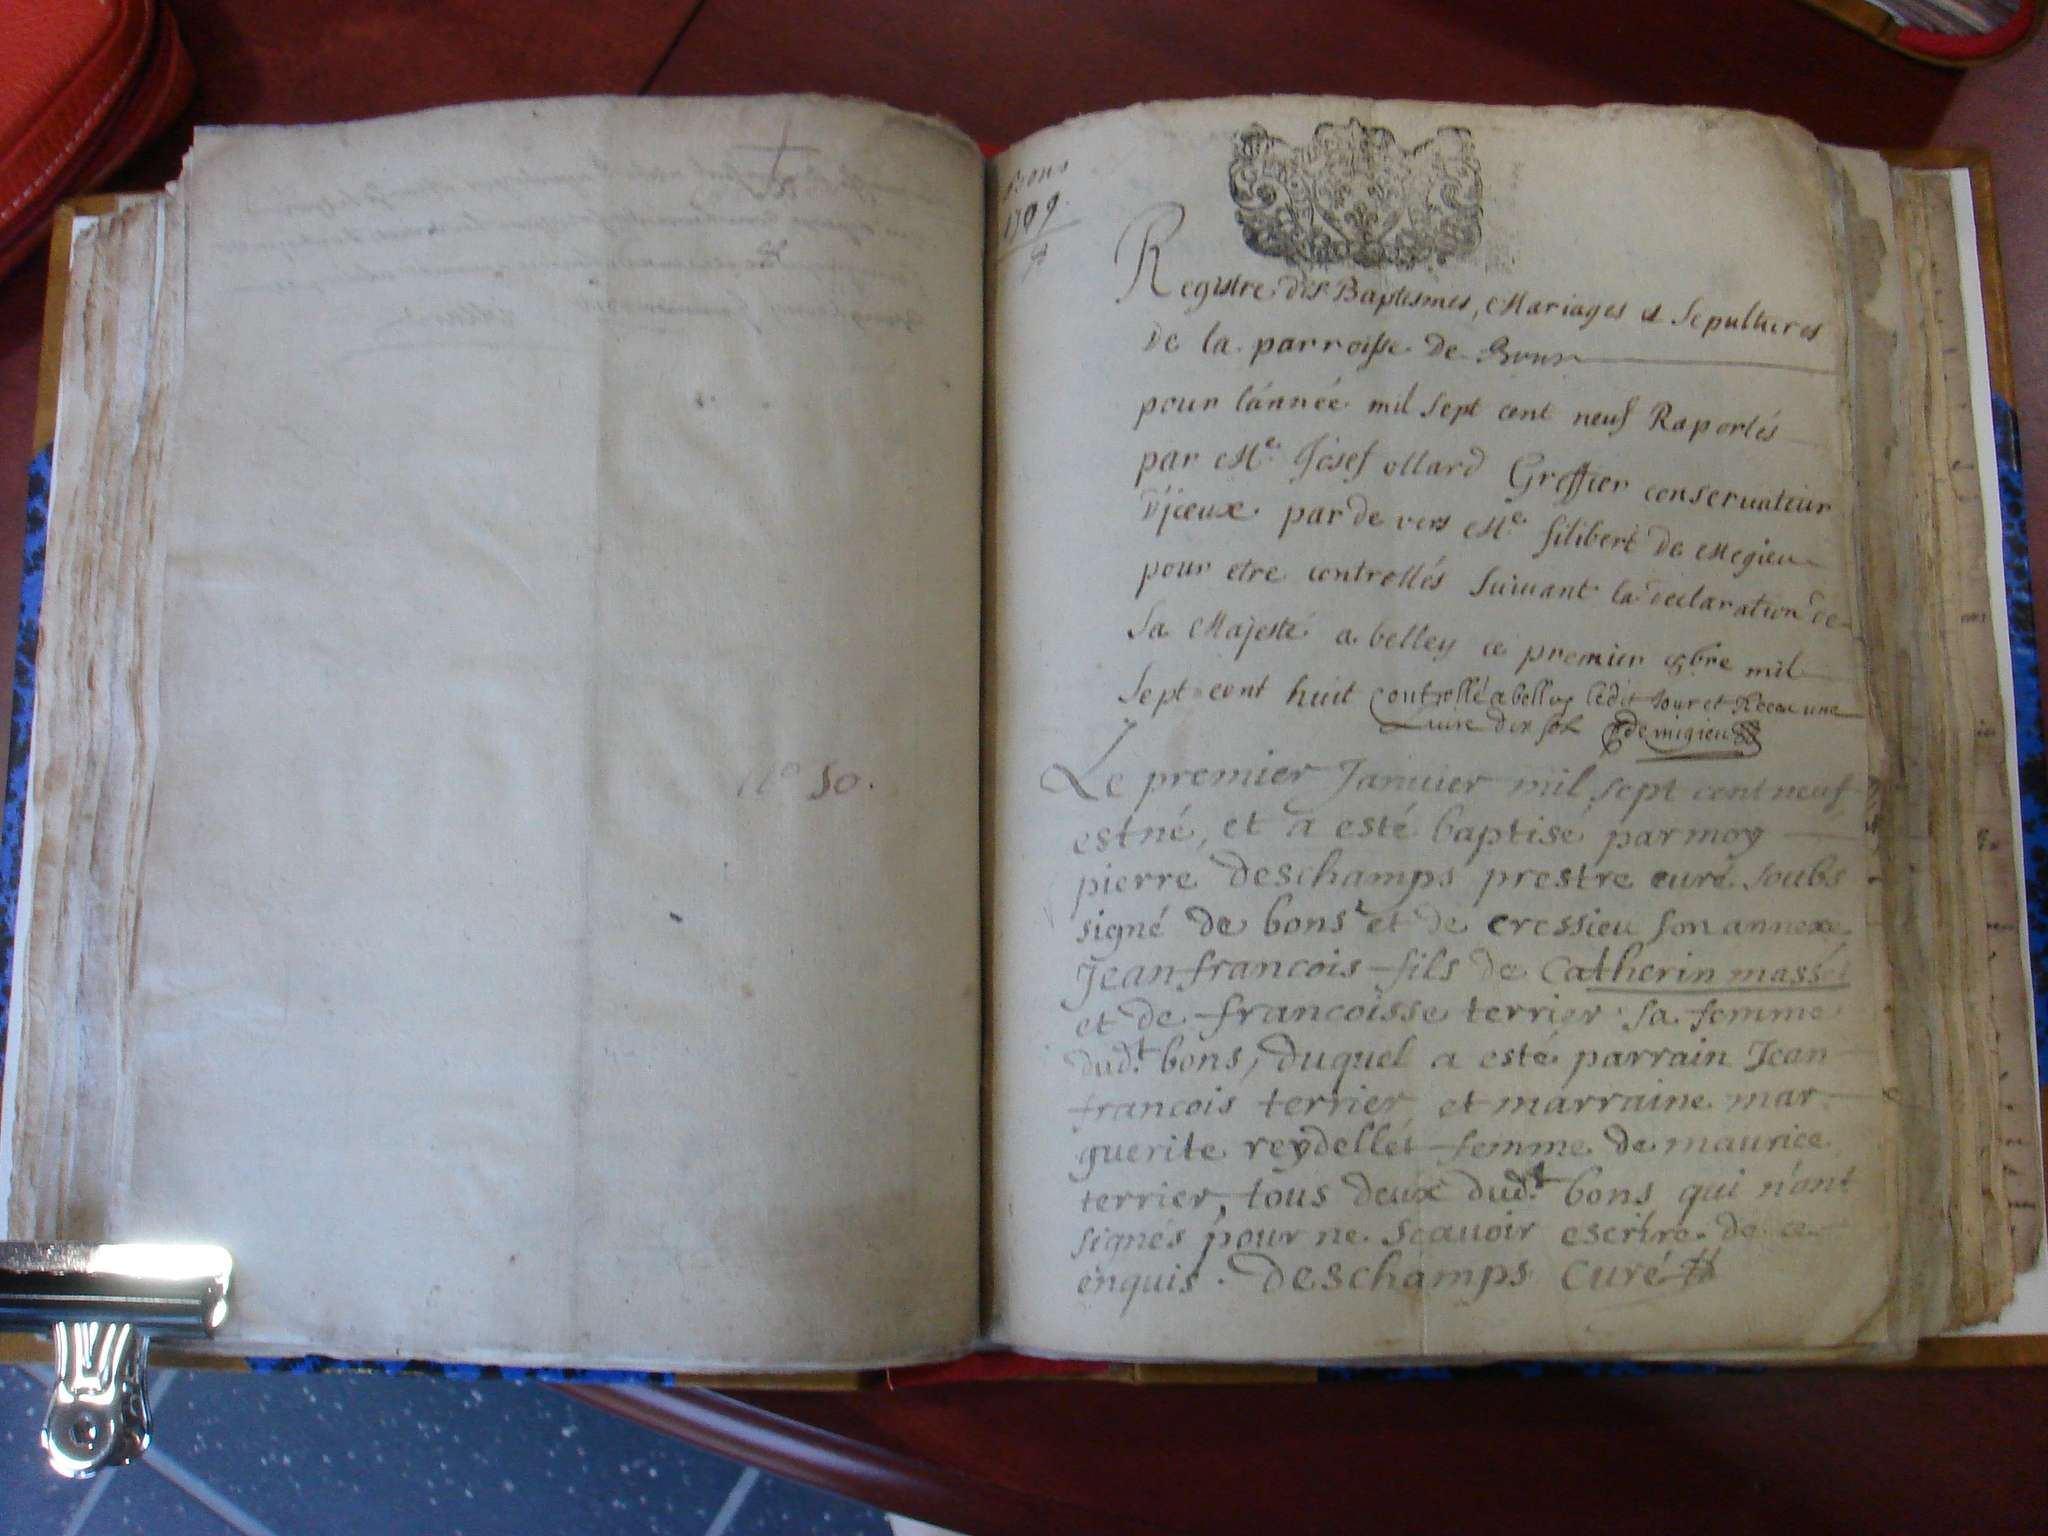 N° 50.
Bons
1709.
Registre des Baptesmes, Mariages et Sepultures
de la parroisse de Bons
pour l'année mil sept cent neuf Raportés
par Me. Josef ollard Greffier conservateur
d'jceux par de vers Me. filibert de Megieu
pour etre controllés suivant la declaration de
sa Majesté a belley ce premier 9bre mil
sept cent huit controllé a belley ledit Jour et Receu une
Luire dix sol demigieu
Le premier Januier mil sept cent neuf
est né, et a esté baptisé par moy
pierre deschamps prestre curé soubs
signé de bons et de cressieu son annexe
Jean francois fils de Catherin masset
et de francoisse terrier sa femme
dudt. bons, duquel a esté parrain Jean
francois terrier et marraine mar
guerite reydellet femme de maurice
terrier, tous deux dudt. bons qui n'ont
signés pour ne scauoir escrire de ce
enquis. deschamps curé